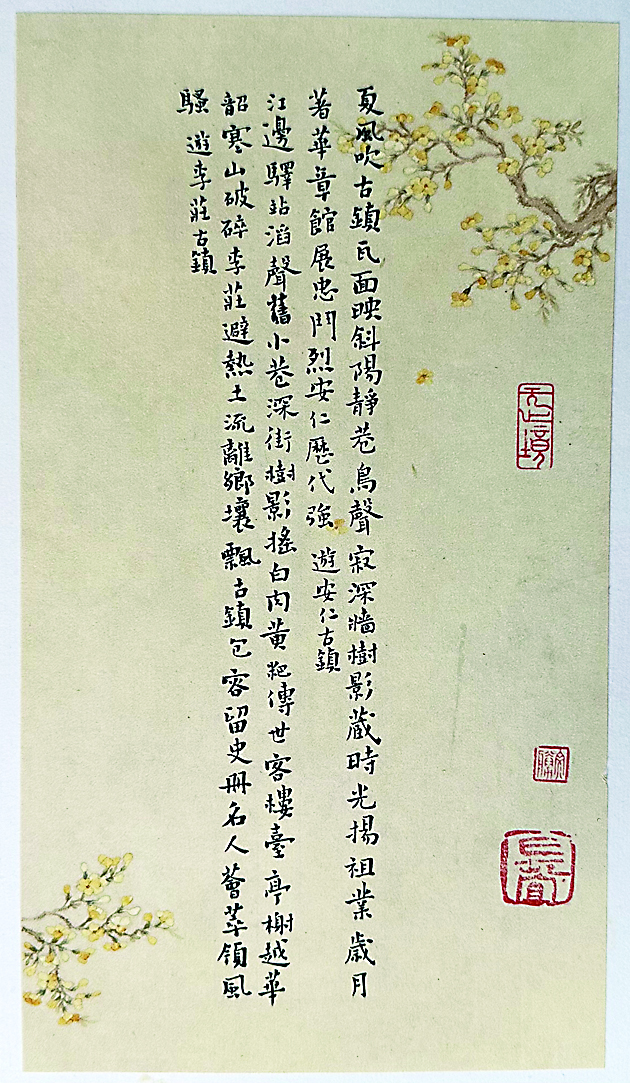 夏風吹古鎮瓦面映斜陽靜巷鳥聲寂深墙樹影藏時光揚祖業歲月
著華章館展忠鬥烈安仁歷代強 遊安仁古鎮
江邊驛站滔聲舊小巷深街樹影搖白肉黃粑傳世客樓臺亭榭越華
韶寒山破碎李莊避熱土流離鄉壤飄古鎮包容留史冊名人薈萃領風
騷 遊李莊古鎮